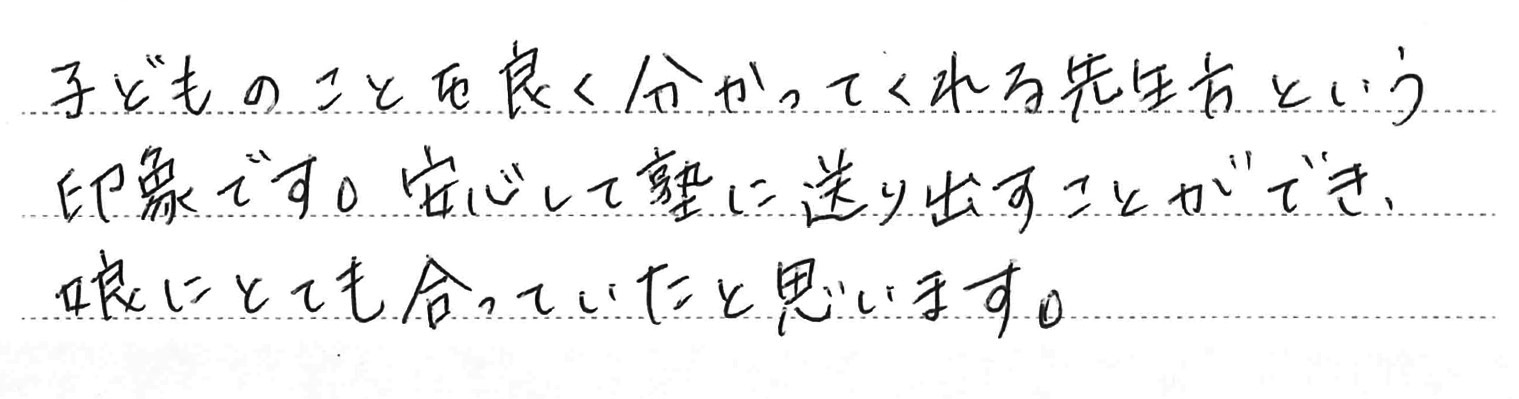 子どものことを良く分かってくれる先生方という
印象です。安心して塾に送り出すことができ、
娘にとても合っていたと思います。